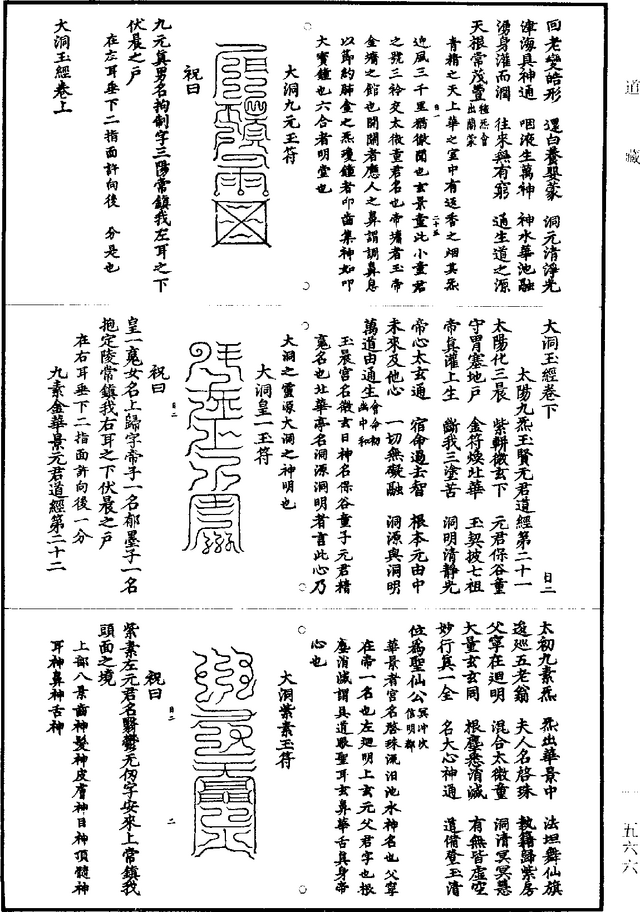 道藏
回老變皓形　還白養嬰蒙　洞元清淨光
津海具神通　咽液生萬神　神水華池融
湧身灌而潤　往來無有窮　通生道之源
天根常茂豐
青精之天上華之室中有返香之烟其炁
迎風三千里猶徹聞也玄景童此小童君
之號三衿交太微童君名也帝墉者玉帝
金墉之館也開關者應人之鼻謂調鼻息
以節約肺金之炁瓊鐘者叩齒集神如叩
大寶鐘也六合者明堂也
大洞九元王符
祝曰
九元真男名拘制字三陽常鎮我左耳之下
伏晨之戶
在左耳垂下二指面許向後　分是也
大洞玉經卷上
大洞玉經卷下
太陽九炁玉賢元君道經第二十一
太陽化三晨　紫軿徵玄下　元君保谷童
守胃塞地戶　金符煥北華　玉契披七祖
帝真灌上生　斷我三塗苦　洞明清靜光
帝心太玄通　宿命過去智　根本元由中
未來及他心　一切無礙融　洞源與洞明
萬道由通生
玉晨宮名徵玄日神名保谷童子元君精
魂名也北華亭名洞源洞明者言此心乃
大洞之靈源大洞之神明也
大洞皇一玉符
祝曰
皇一魂女名上歸字帝子一名郁墨子一名
抱定陵常鎮我右耳之下伏晨之戶
在右耳垂下二指面許向後一分
九素金華景元君道經第二十二
太初九素炁　炁出華景中　法坦舞仙旗
逡巡五老翁　夫人名啓珠　執籍歸紫房
父寧在迴明　混合太微童　洞清冥冥慧
大量玄玄同　根塵悉消滅　有無皆虛空
妙行真一全　名大心神通　道備登玉清
位爲聖仙公
華景者宮名啓珠流汨池水神名也父寧
在帝一名也左迴明上玄元父君字也根
塵消滅謂具道眼聖耳玄鼻華舌真身帝
心也
大洞紫素玉符
祝曰
紫素左元君名翳鬱无刃字安來上常鎮我
頭面之境
上部八景齒神髮神皮膚神目神頂髓神
耳神鼻神舌神
五六六